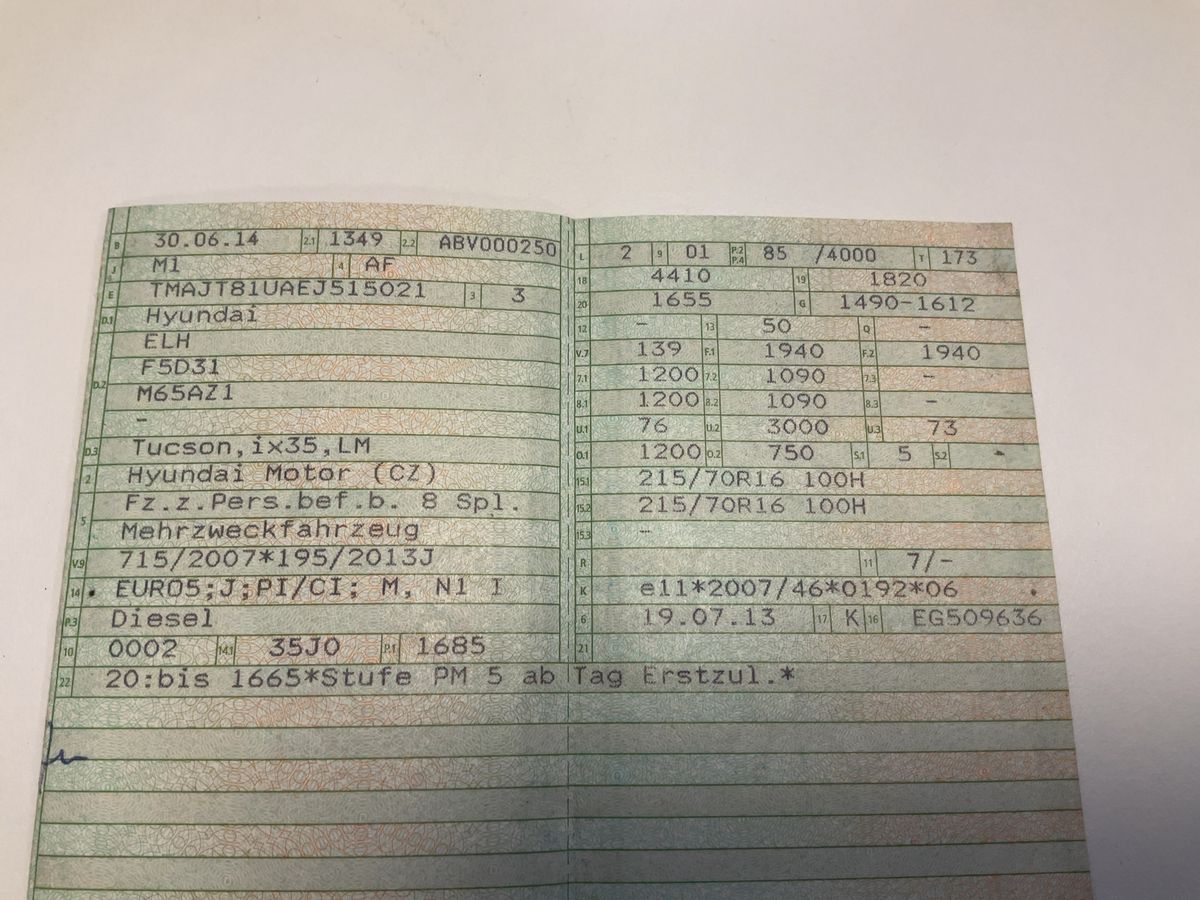 B 30.06.14 2.1 1349 2.2 ABV000250
J M1 4 AF
E TMAJT81UAEJ515021 3 3
D.1 Hyundai
ELH
D.2 F5D31
M65AZ1
-
D.3 Tucson,ix35,LM
2 Hyundai Motor (CZ)
5 Fz.z.Pers.bef.b. 8 Spl.
Mehrzweckfahrzeug
V.9 715/2007*195/2013J
14 EURO5;J;PI/CI; M, N1 I
P.3 Diesel
10 0002 14.1 35J0 P.1 1685
L 2 9 01 P.2 P.4 85 /4000 T 173
18 4410 19 1820
20 1655 G 1490-1612
12 - 13 50 Q -
V.7 139 F.1 1940 F.2 1940
7.1 1200 7.2 1090 7.3 -
8.1 1200 8.2 1090 8.3 -
U.1 76 U.2 3000 U.3 73
O.1 1200 O.2 750 S.1 5 S.2 -
15.1 215/70R16 100H
15.2 215/70R16 100H
15.3 -
R 11 7/-
K e11*2007/46*0192*06
6 19.07.13 17 K 16 EG509636
21
22 20:bis 1665*Stufe PM 5 ab Tag Erstzul.*